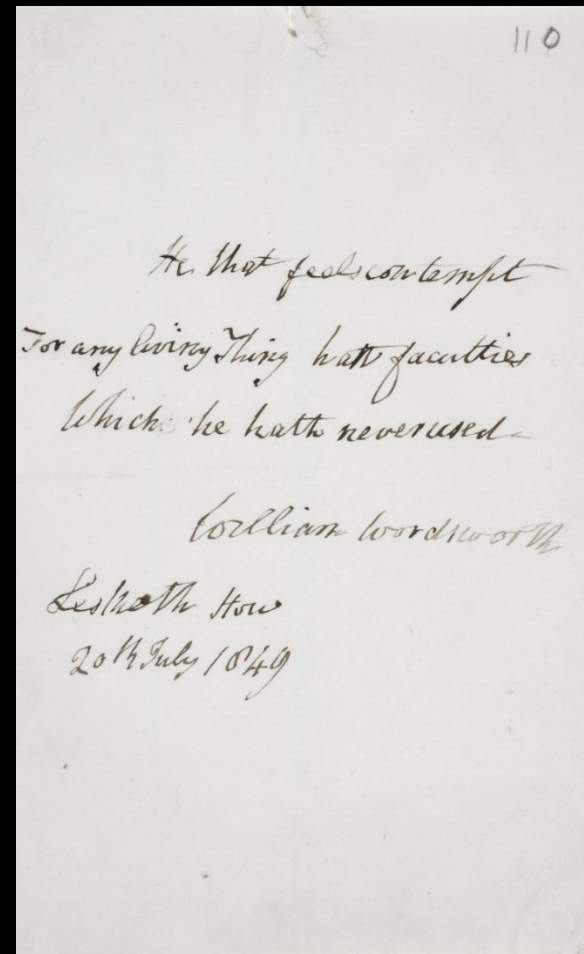 110
He that feels contempt
For any living Thing hath faculties
Which he hath never used
William Wordsworth
Lesketh How
20th July 1849